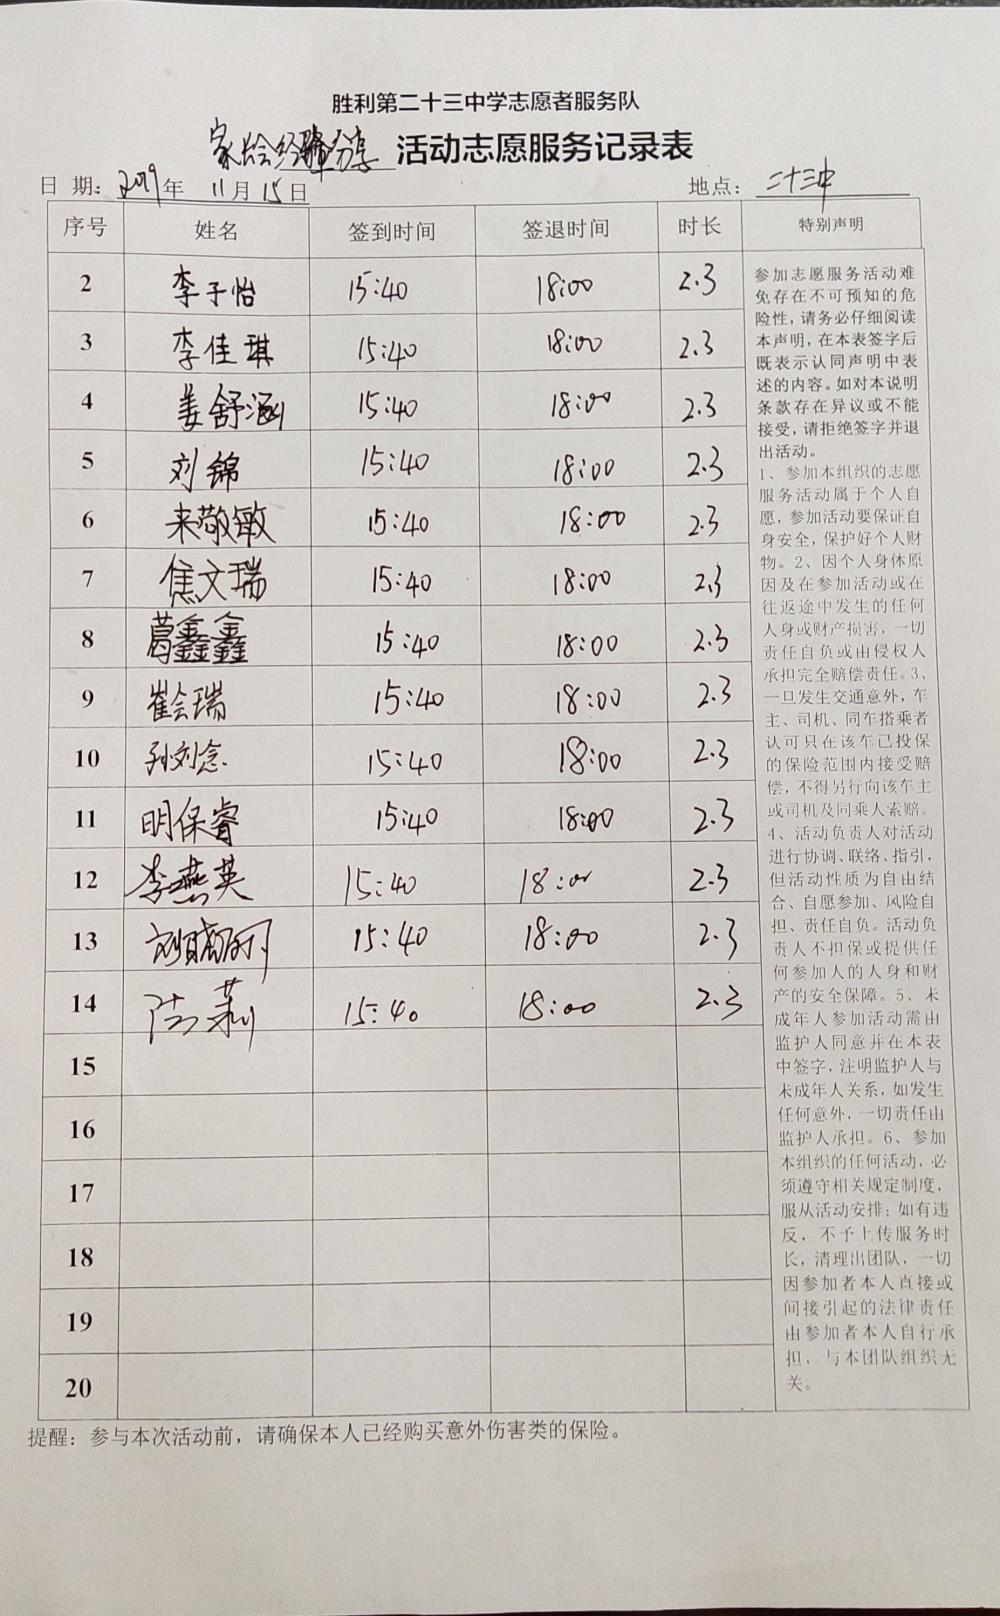 胜利第二十三中学志愿者服务队
家长会经验分享 活动志愿服务记录表
日 期：2019年 11月15日 地点：二十三中
序号 姓名 签到时间 签退时间 时长 特别声明
2 李子怡 15:40 18:00 2.3
3 李佳琪 15:40 18:00 2.3
4 姜舒涵 15:40 18:00 2.3
5 刘锦 15:40 18:00 2.3
6 来敬敏 15:40 18:00 2.3
7 焦文瑞 15:40 18:00 2.3
8 葛鑫鑫 15:40 18:00 2.3
9 崔会瑞 15:40 18:00 2.3
10 孙刘念 15:40 18:00 2.3
11 明保睿 15:40 18:00 2.3
12 李燕英 15:40 18:00 2.3
13 15:40 18:00 2.3
14 15:40 18:00 2.3
15
16
17
18
19
20
参加志愿服务活动难
免存在不可预知的危
险性，请务必仔细阅读
本声明，在本表签字后
既表示认同声明中表
述的内容。如对本说明
条款存在异议或不能
接受，请拒绝签字并退
出活动。
1、参加本组织的志愿
服务活动属于个人自
愿，参加活动要保证自
身安全，保护好个人财
物。2、因个人身体原
因及在参加活动或在
往返途中发生的任何
人身或财产损害，一切
责任自负或由侵权人
承担完全赔偿责任。3、
一旦发生交通意外，车
主、司机、同车搭乘者
认可只在该车已投保
的保险范围内接受赔
偿，不得另行向该车主
或司机及同乘人索赔。
4、活动负责人对活动
进行协调、联络、指引，
但活动性质为自由结
合、自愿参加、风险自
担、责任自负。活动负
责人不担保或提供任
何参加人的人身和财
产的安全保障。5、未
成年人参加活动需由
监护人同意并在本表
中签字，注明监护人与
未成年人关系，如发生
任何意外，一切责任由
监护人承担。6、参加
本组织的任何活动，必
须遵守相关规定制度，
服从活动安排；如有违
反，不予上传服务时
长，清理出团队，一切
因参加者本人直接或
间接引起的法律责任
由参加者本人自行承
担，与本团队组织无
关。
提醒：参与本次活动前，请确保本人已经购买意外伤害类的保险。